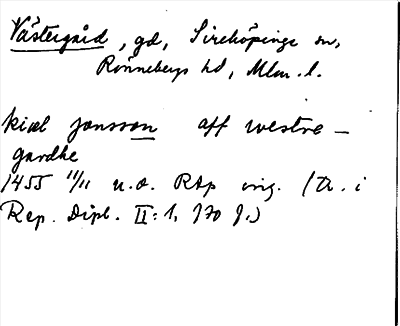 Västergård, gd, Sireköpinge sn,
Rönnebergs hd, Mlm. l.
kiæl jonsson aff westre-
gardhe
1455 11/11 u.o. RAp orig. (Tr. i
Rep. Dipl. II:1, 370 f.)